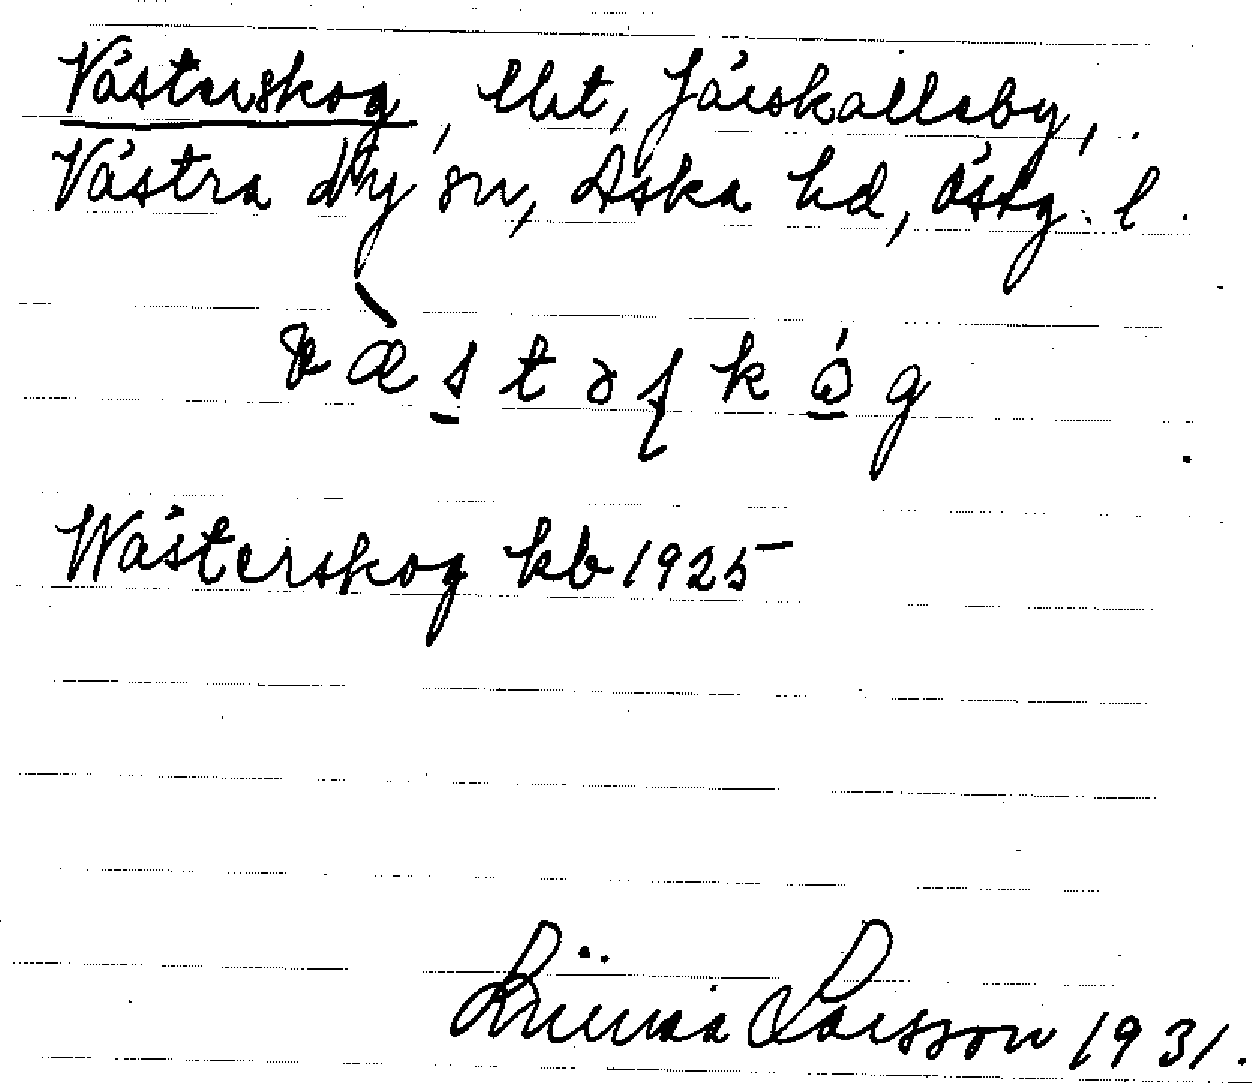 Västerskog, lht, Järskallsby,
Västra Ny sn, Aska hd, Östg. l.
Wästerskog kb 1925
Linnéa Larsson 1931.